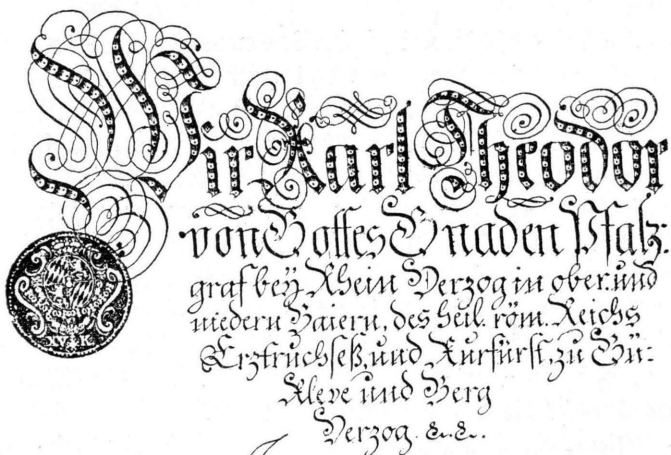 Wir Karl Theodor
von Gottes Gnaden Pfalz:
graf bey Rhein Herzog in ober: und
niedern Baiern, des heil. röm. Reichs
Erztruchseß, und Kurfürst, zu Gü:
Kleve und Berg
Herzog. &. &..